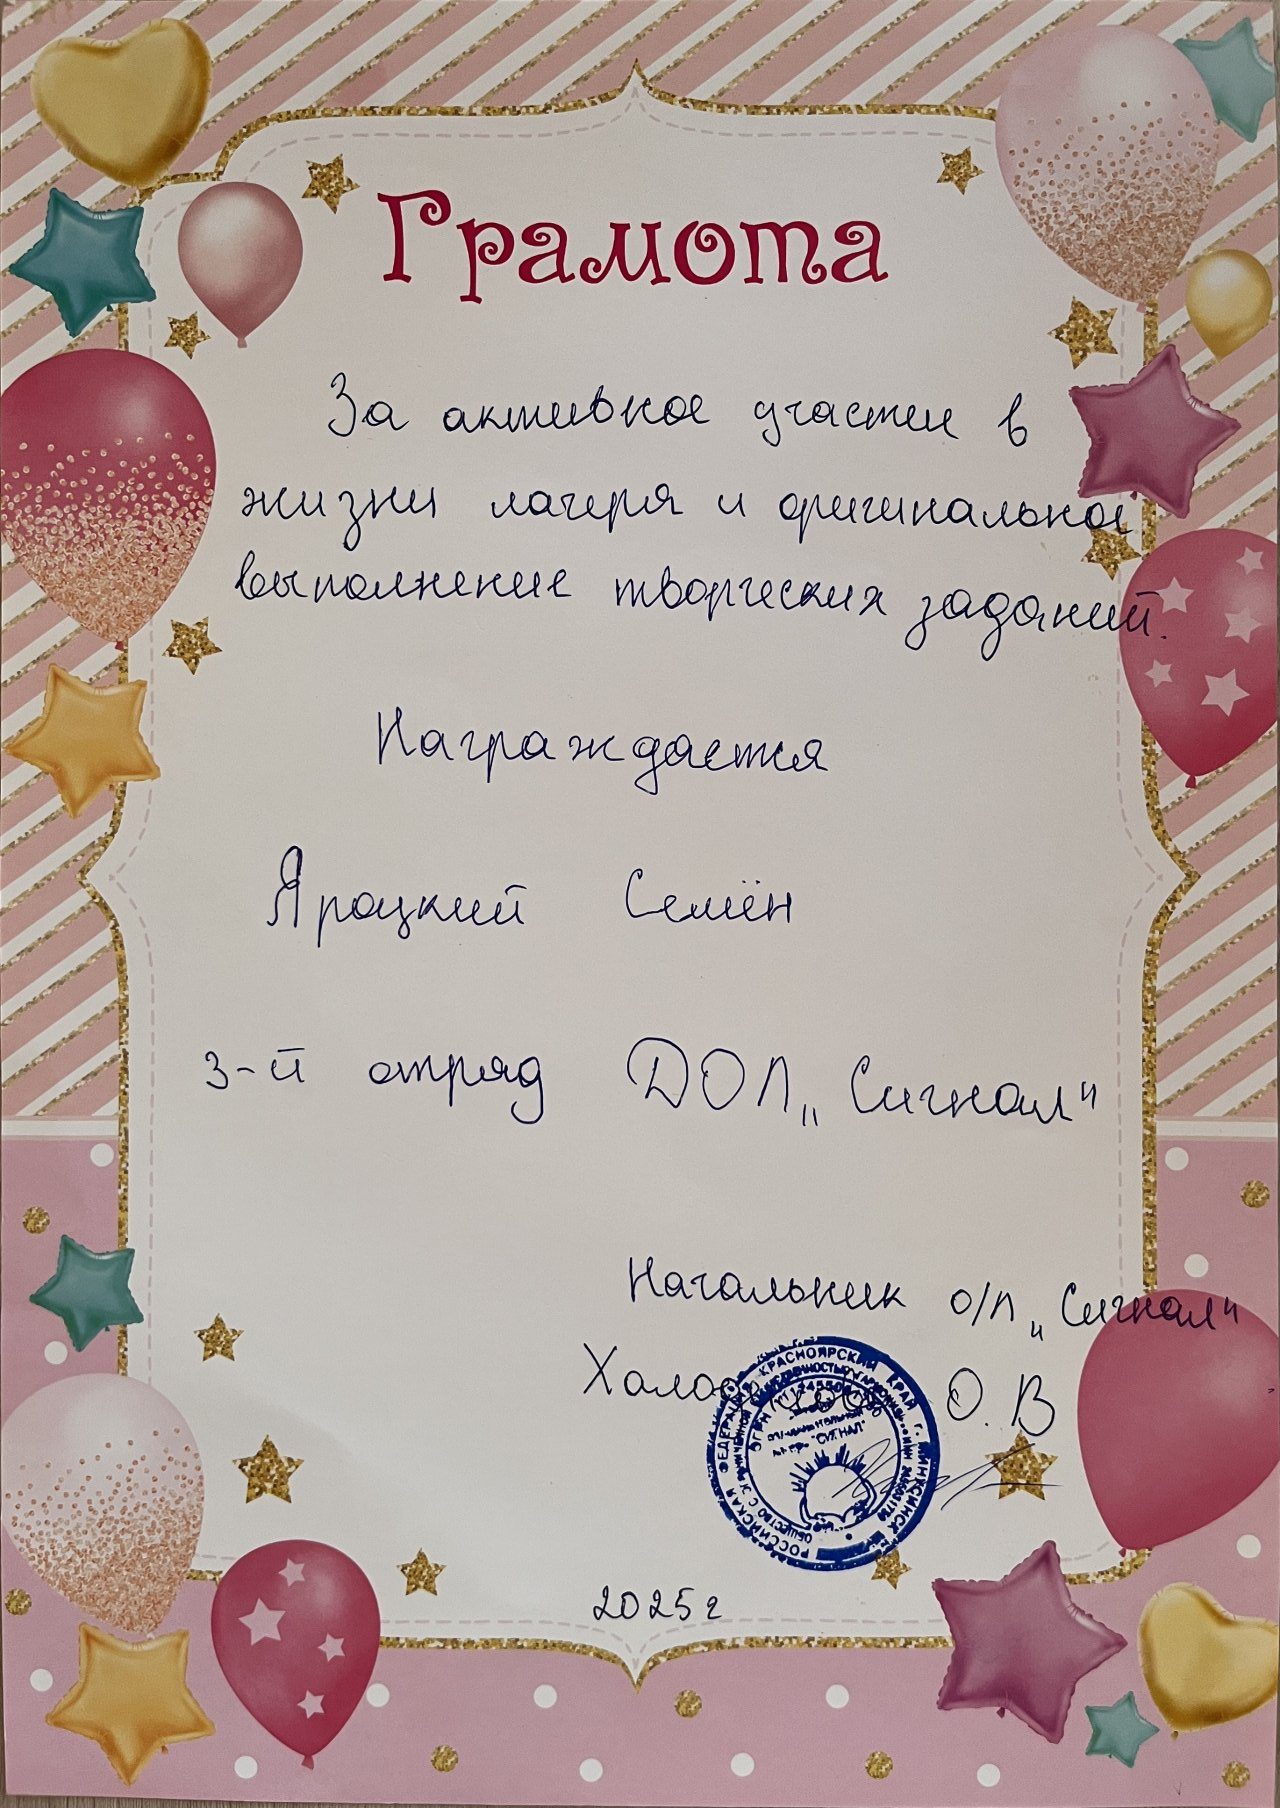 Грамота
За активное участие в
жизни лагеря и оригинальное
выполнение творческих заданий.
Награждается
Яроцкий Семён
3-й отряд ДОЛ „Сигнал"
Начальник о/л „Сигнал"
О. В
РОССИЙСКАЯ ФЕДЕРАЦИЯ КРАСНОЯРСКИЙ КРАЙ г. МИНУСИНСК
"СИГНАЛ"
2025 г